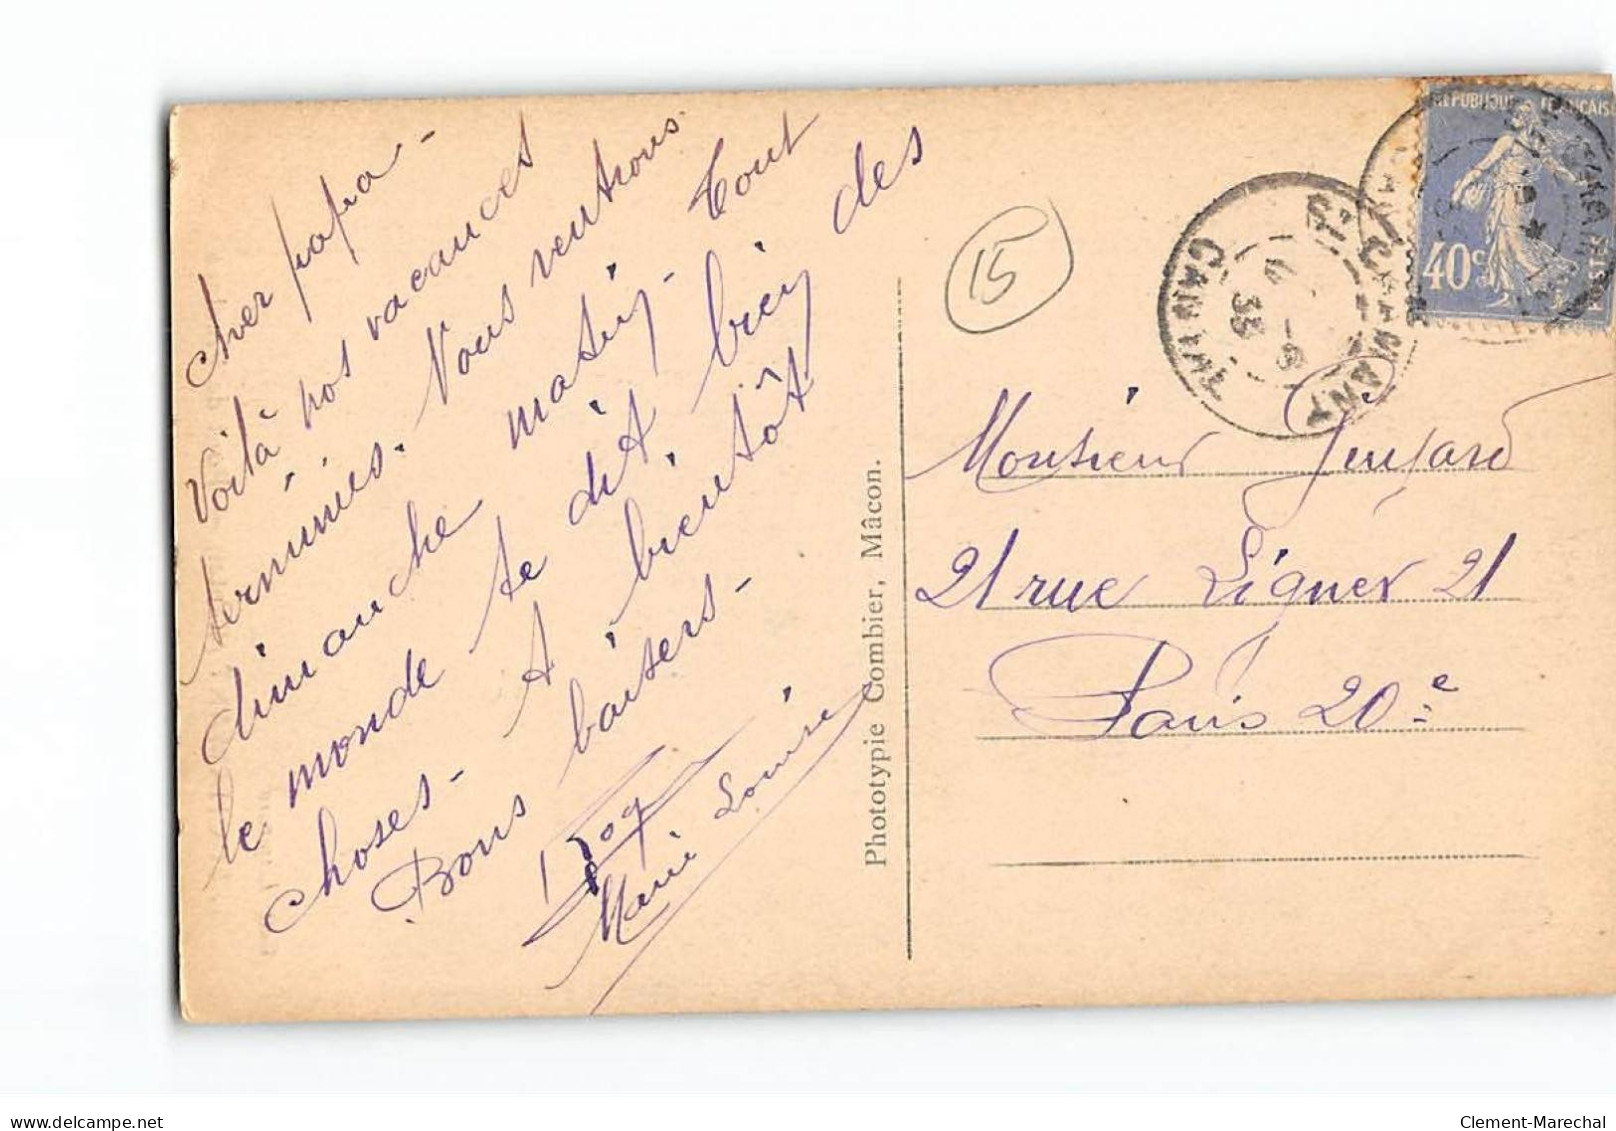 Cher papa -
Voilà nos vacances
terminées. Nous rentrons
dimanche matin - Tout
le monde te dit bien des
choses - A bientôt
Bons baisers -
Marie Louise
Phototypie Combier, Mâcon.
15
REPUBLIQUE FRANÇAISE
40c
POSTES
CANTAL
Monsieur
21 rue Ligner 21
Paris 20e
delcampe.net
Clement-Marechal